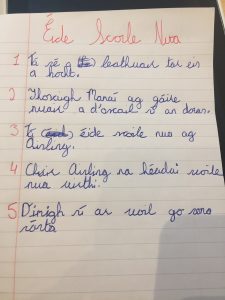 Éide Scoile Nua
1 Tá sé a leathuair tar éis
a hocht.
2 Thosaigh Mamaí ag gáire
nuair a d'oscail sí an doras.
3 Tá éide scoile nua ag
Aisling.
4 Chuir Aisling na héadaí scoile
nua uirthi.
5 D'inigh sí ar scoil go
sásta